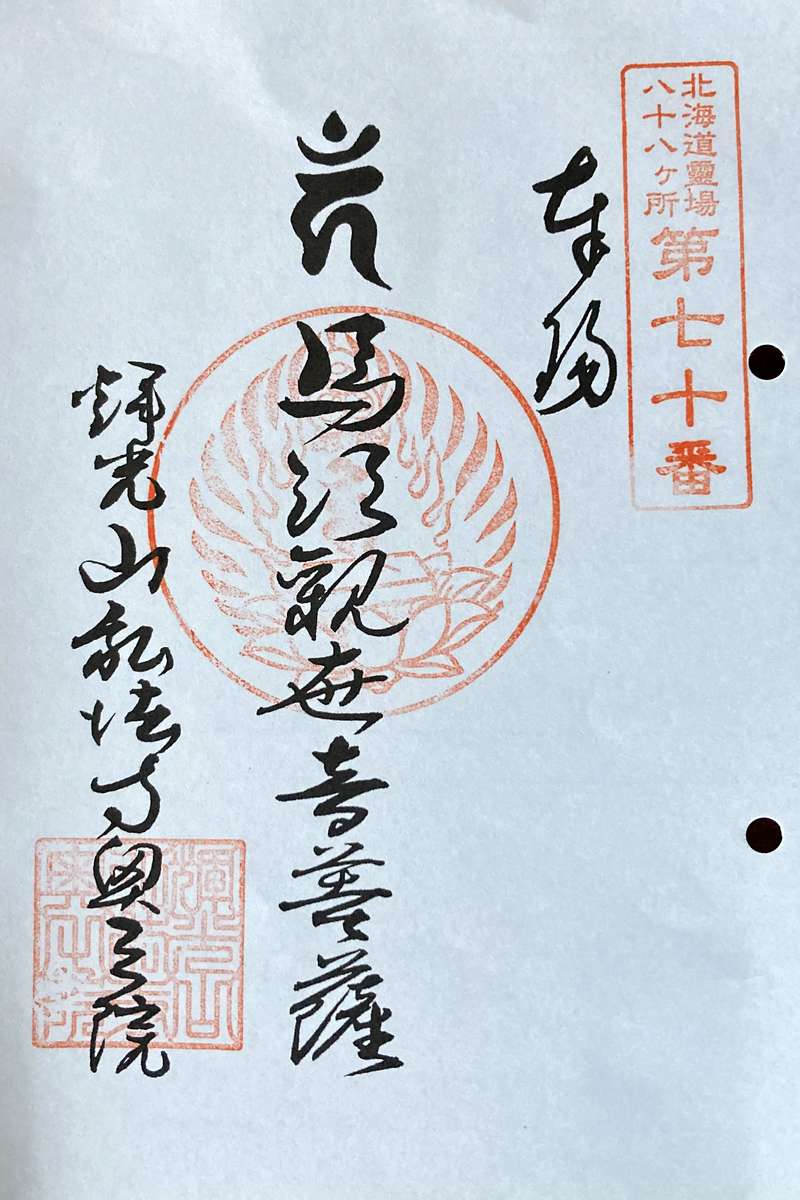 北海道靈場
八十八ヶ所
第七十番
奉
馬頭観世音菩薩
輝光山弘法寺奥之院